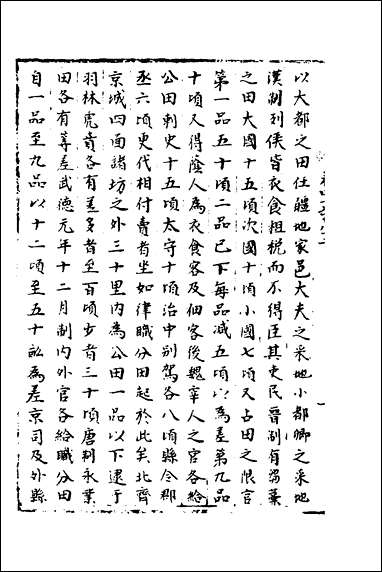 以大都之田任畺地家邑大夫之采地小都卿之采地
漢制列侯皆衣食租税而不得臣其吏民晉制有芻藁
之田大國十五頃次國十頃小國七頃又占田之限官
第一品五十頃二品已下每品減五頃以為差第九品
十頃又得蔭人為衣食客及佃客後魏宰人之官各給
公田刺史十五頃太守十頃治中別駕各八頃縣令郡
丞六頃更代相付賣者坐如律職分田起於此矣北齊
京城四面諸坊之外三十里内為公田一品以下逮于
羽林虎賁各有差多者至百頃少者三十頃唐制永業
田各有等差武德元年十二月制内外官各給職分田
自一品至九品以十二頃至五十畝為差京司及外縣